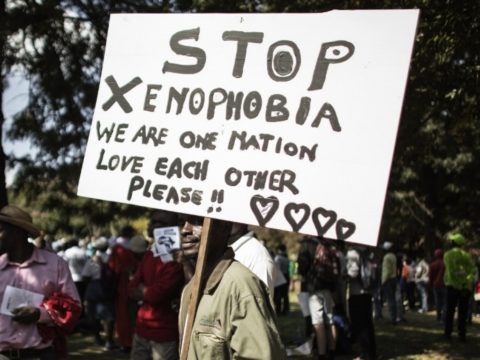 STOP
XENOPHOBIA
WE ARE ONE NATION
LOVE EACH OTHER
PLEASE!!